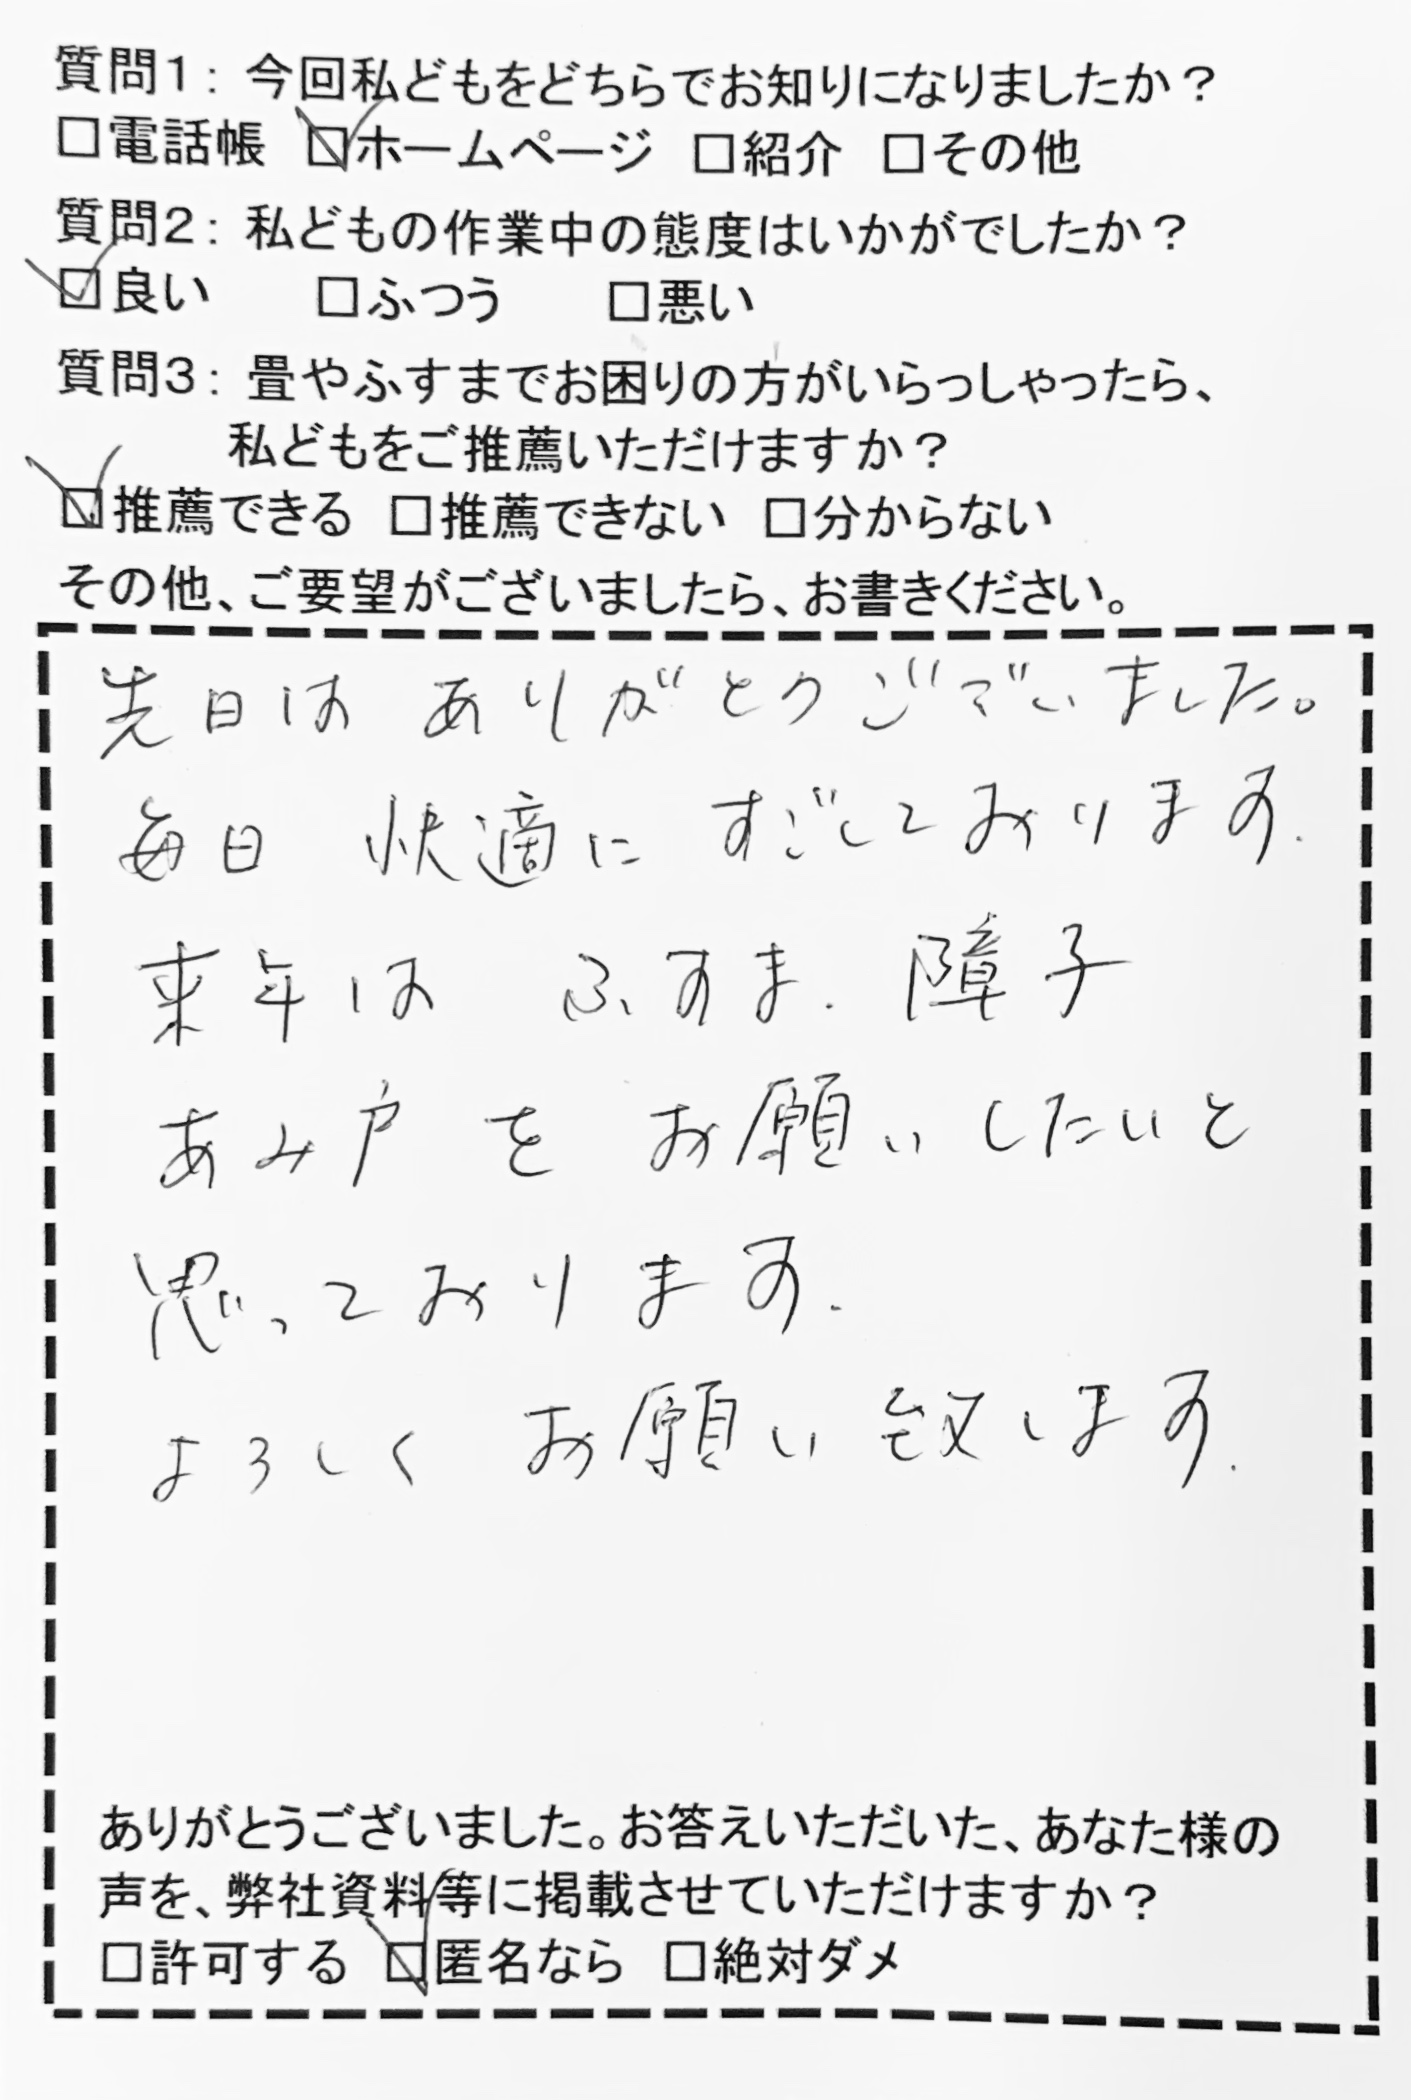 質問1：今回私どもをどちらでお知りになりましたか？
□電話帳 ☑ホームページ □紹介 □その他
質問2：私どもの作業中の態度はいかがでしたか？
☑良い □ふつう □悪い
質問3：畳やふすまでお困りの方がいらっしゃったら、
私どもをご推薦いただけますか？
☑推薦できる □推薦できない □分からない
その他、ご要望がございましたら、お書きください。
先日は ありがとうございました。
毎日 快適に すごしております.
来年は ふすま. 障子
あみ戸を お願いしたいと
思っております.
よろしく お願い致します.
ありがとうございました。お答えいただいた、あなた様の
声を、弊社資料等に掲載させていただけますか？
□許可する ☑匿名なら □絶対ダメ